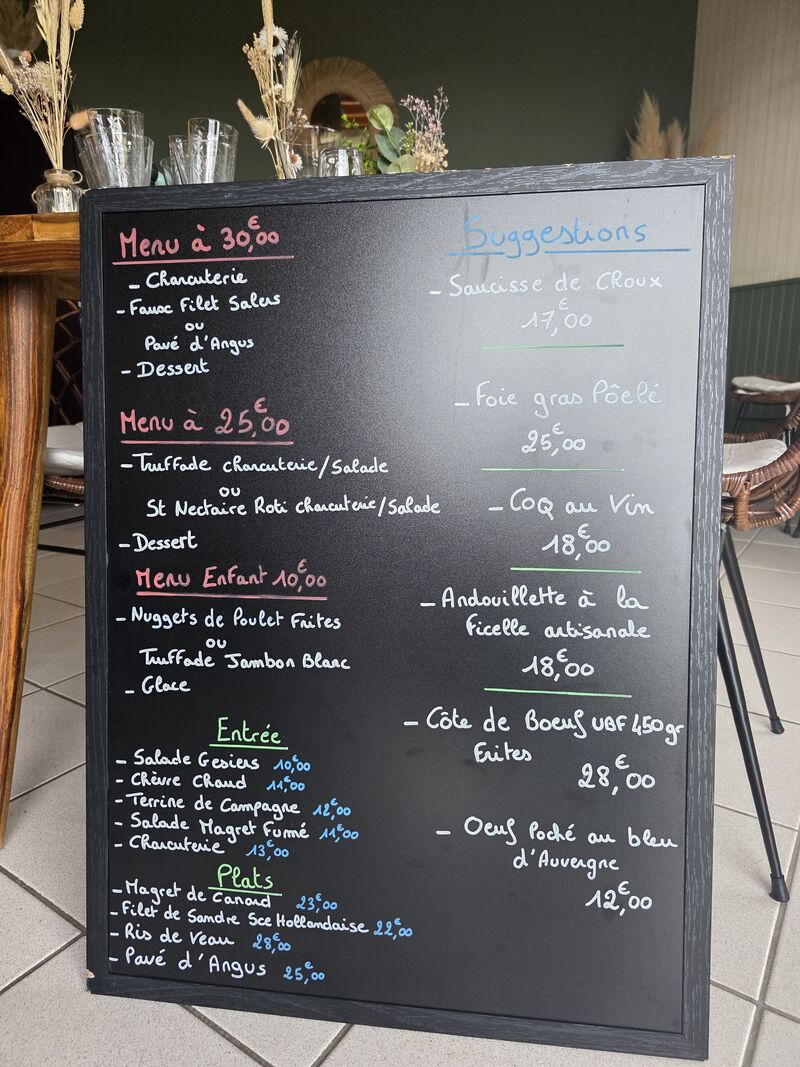 Menu à 30,€00
- Charcuterie
- Faux Filet Salers
ou
Pavé d'Angus
- Dessert
Menu à 25,€00
- Truffade charcuterie/Salade
ou
St Nectaire Roti charcuterie/Salade
- Dessert
Menu Enfant 10,€00
- Nuggets de Poulet Frites
ou
Truffade Jambon Blanc
- Glace
Entrée
- Salade Gesiers 10,€00
- Chèvre Chaud 11,€00
- Terrine de Campagne 12,€00
- Salade Magret Fumé 11,€00
- Charcuterie 13,€00
Plats
- Magret de Canard 23,€00
- Filet de Sandre Sce Hollandaise 22,€00
- Ris de Veau 28,€00
- Pavé d'Angus 25,€00
Suggestions
- Saucisse de Choux
17,€00
- Foie gras Pôelé
25,€00
- Coq au Vin
18,€00
- Andouillette à la
ficelle artisanale
18,€00
- Côte de Boeuf UBF 450gr
Frites
28,€00
- Oeuf Poché au bleu
d'Auvergne
12,€00